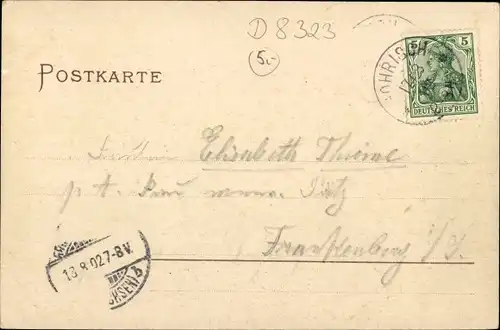 D 8323
5.-
POSTKARTE
GOHRISCH
5 5
DEUTSCHES REICH
Fräulein Elisabeth Thieme
p. A. Frau
Frankenberg i/S.
13.8.02.7-8V.
(SACHSEN)